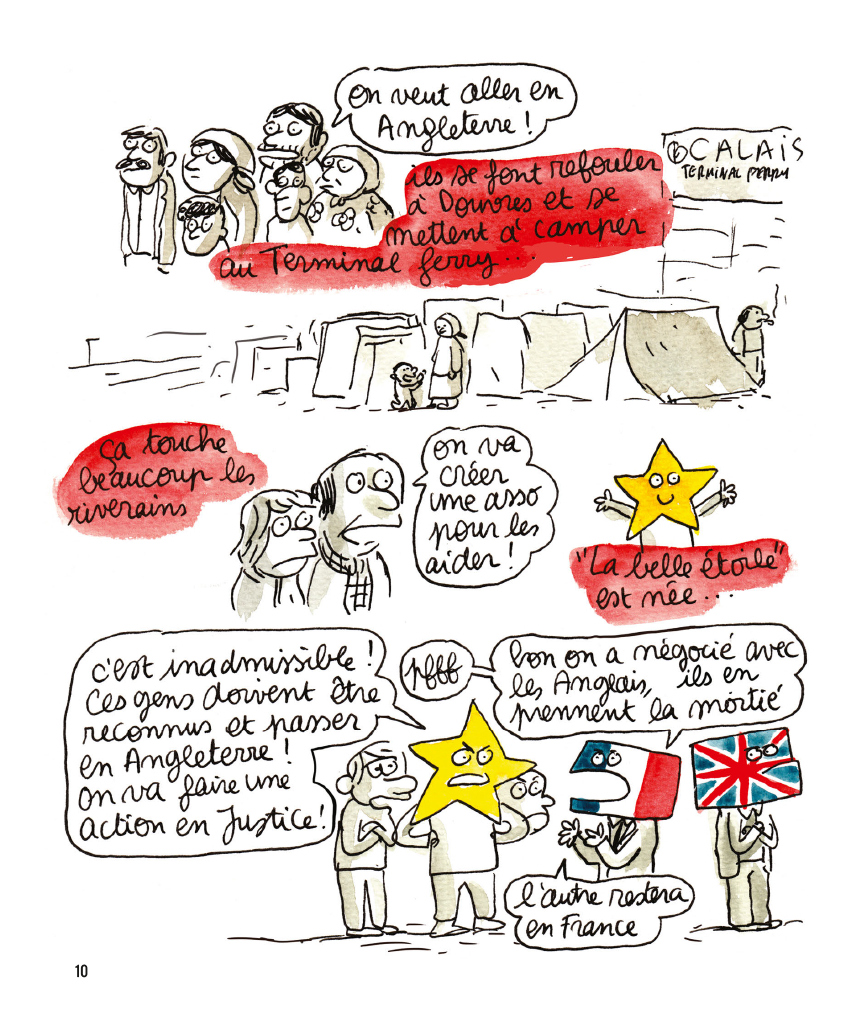 on veut aller en
Angleterre !
CALAIS
TERMINAL FERRY
ils se font refouler
à Douvres et se
mettent à camper
au Terminal ferry...
ça touche
beaucoup les
riverains
on va
créer
une asso
pour les
aider !
"La belle étoile"
est née...
c'est inadmissible !
Ces gens doivent être
reconnus et passer
en Angleterre !
on va faire une
action en Justice !
pfff
bon on a négocié avec
les Anglais, ils en
prennent la moitié
l'autre restera
en France
10